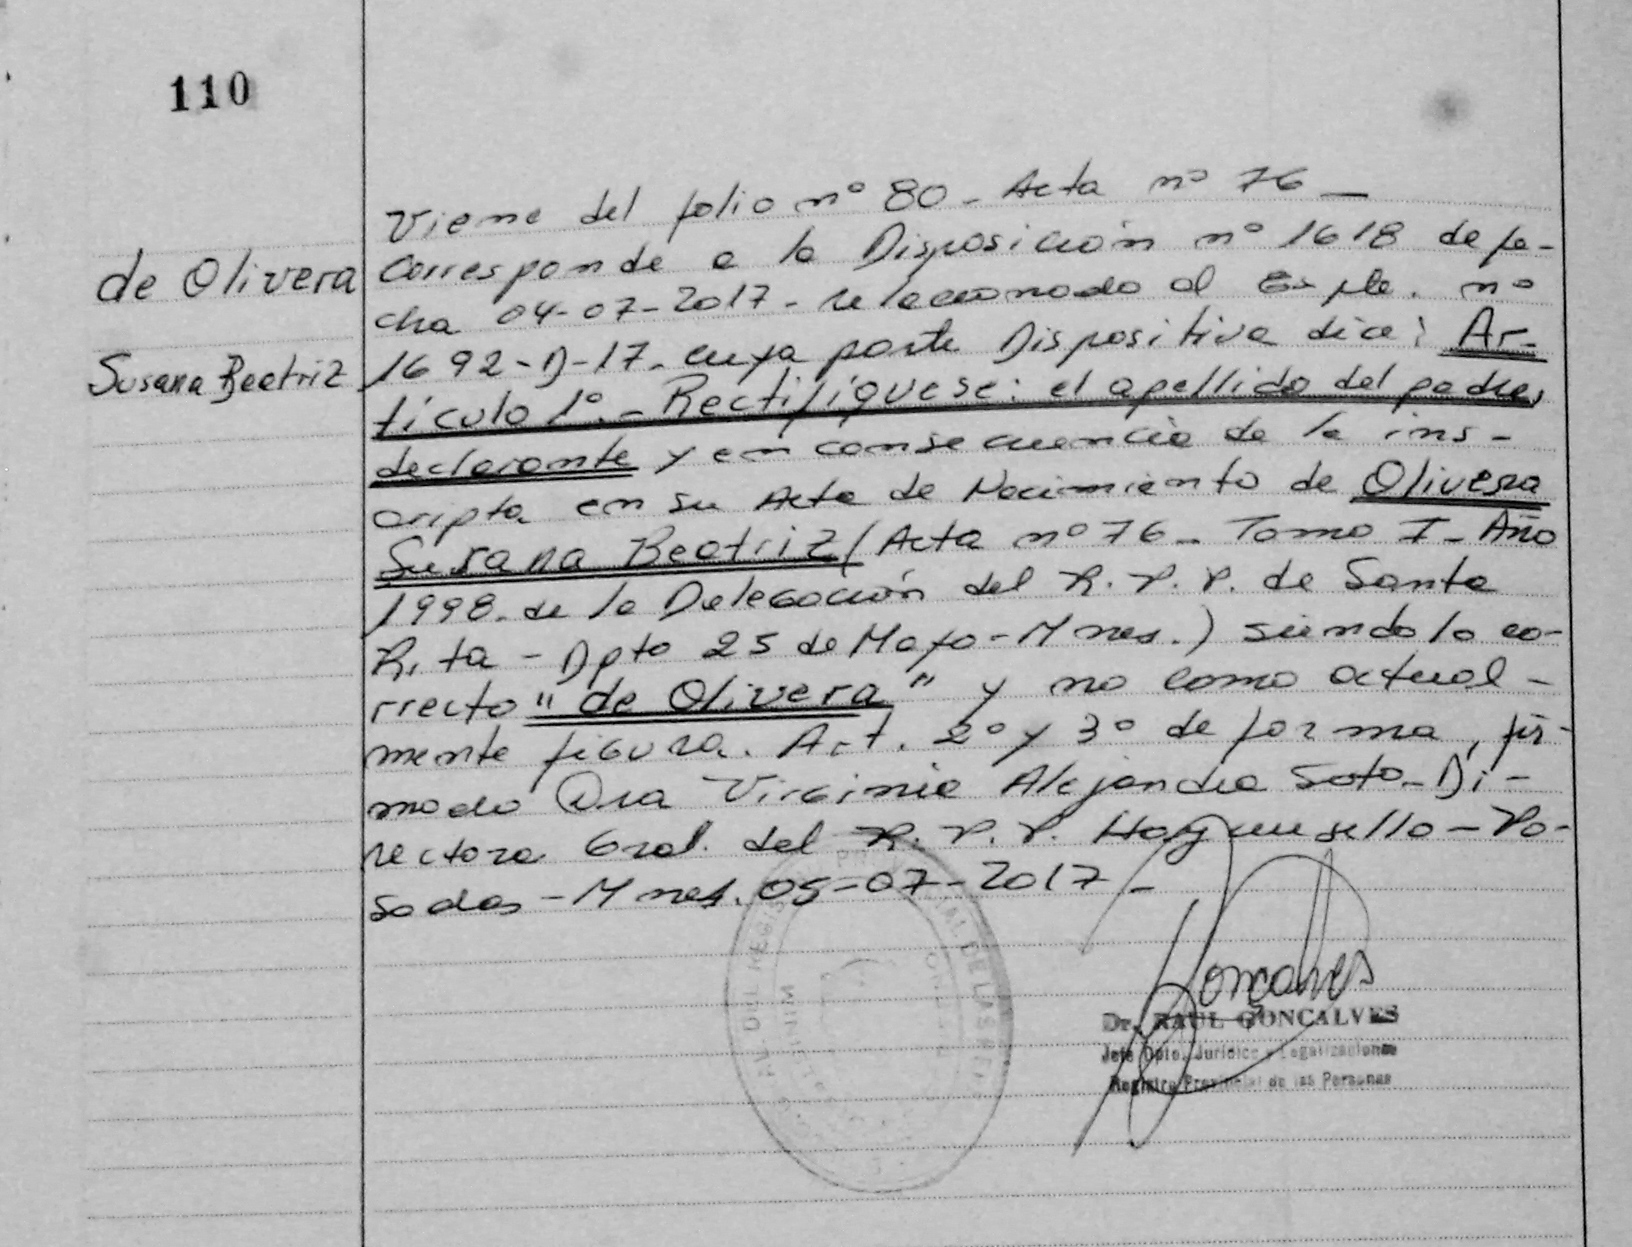 110
de Olivera
Susana Beatriz
Viene del folio nº 80 - Acta nº 76 -
Corresponde a la Disposición nº 1618 de fe-
cha 04-07-2017 - relacionado al Expte. nº
1692-D-17. cuya parte Dispositiva dice: Ar-
tículo 1º.- Rectifíquese: el apellido del padre,
declarante y en consecuencia de la ins-
cripta en su Acta de Nacimiento de Olivera
Susana Beatriz (Acta nº 76 - Tomo I - Año
1998. de la Delegación del R. P. P. de Santa
Rita - Dpto 25 de Mayo - Mnes.) siendo lo co-
rrecto " de Olivera " y no como actual-
mente figura. Art. 2º y 3º de forma, fir-
mado Dra Virginia Alejandra Soto - Di-
rectora Gral. del R. P. P. Hay un sello - Po-
sadas - Mnes. 05-07-2017 -
Goncalves
Dr. RAUL GONCALVES
Jefe Dpto. Jurídico y Legalizaciones
Registro Provincial de las Personas